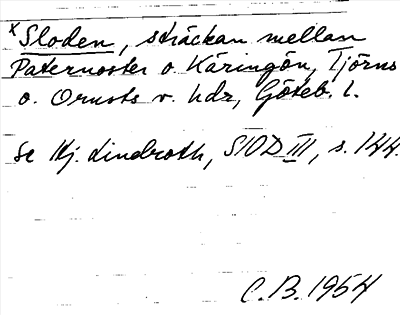 x Sloden, sträckan mellan
Paternoster o Käringön, Tjörns
o. Orusts v. hdr, Göteb. l.
Se Hj. Lindroth, SIOD III, s. 144.
C.B. 1954